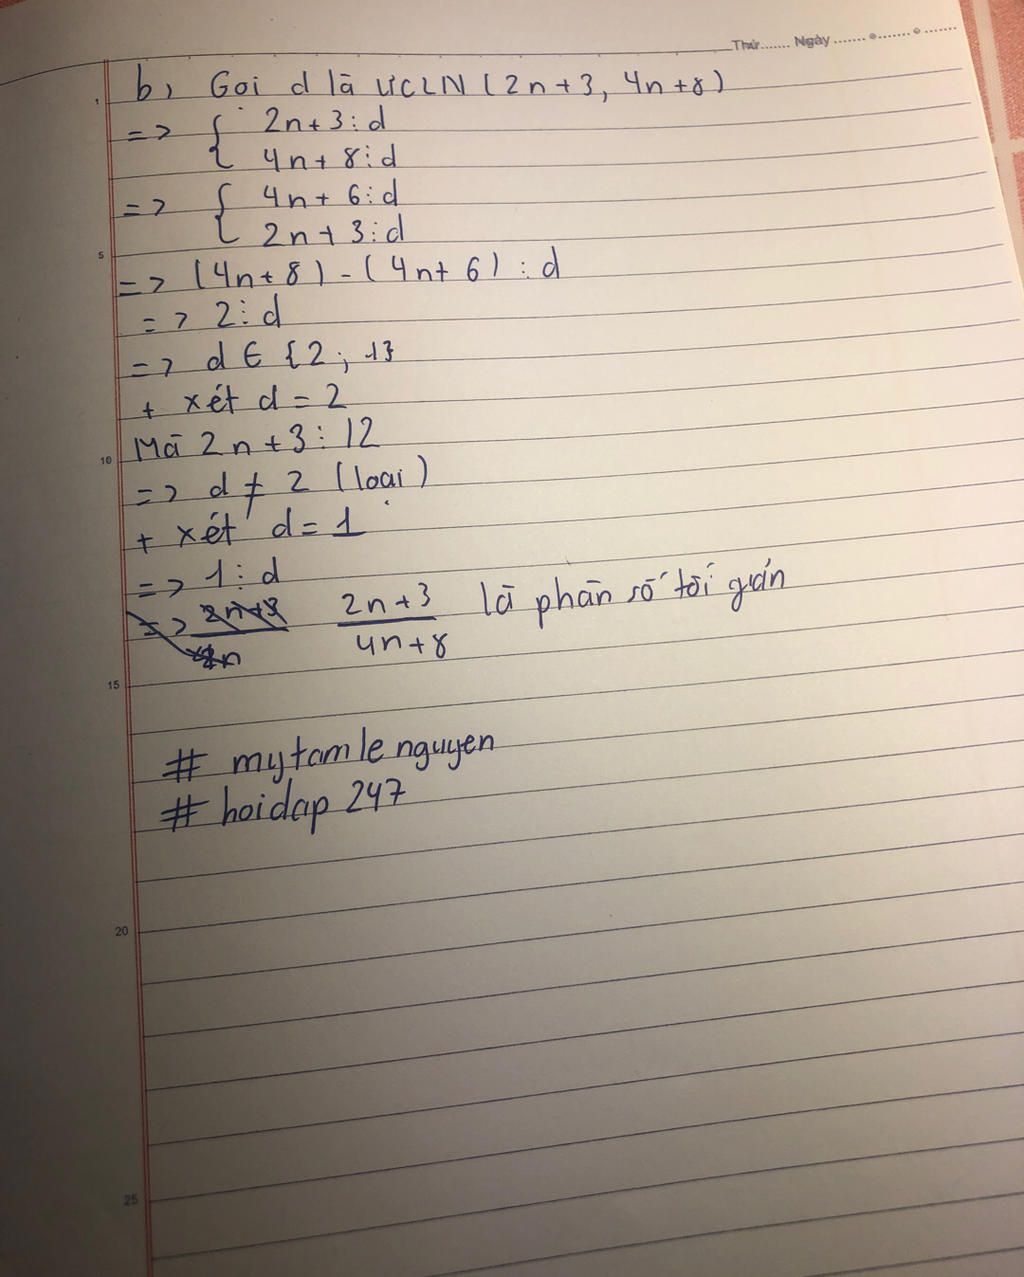 Thứ....... Ngày .......
1
b, Gọi d là ƯCLN (2n+3, 4n+8)
=> { 2n+3⋮d
4n+8⋮d
=> { 4n+6⋮d
5
2n+3⋮d
=> (4n+8)-(4n+6)⋮d
=> 2⋮d
=> d ∈ {2; 1}
+ xét d = 2
Mà 2n+3⋮12
10
=> d ≠ 2 (loại)
+ xét d = 1
=> 1⋮d
=> 2n+3/4n+8 là phân số tối giản
15
# mytamlenguyen
# hoidap 247
20
25